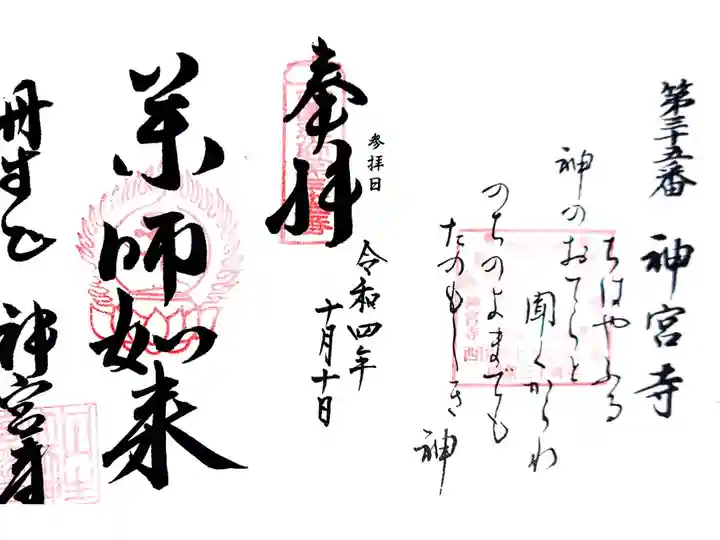 第三十五番 神宮寺
ちはやふる
神のおてらと
聞くからわ
のちのよまでも
たのもしき
神
参拝日
令和四年
十月十日
奉拝
薬師如来
丹生山 神宮寺